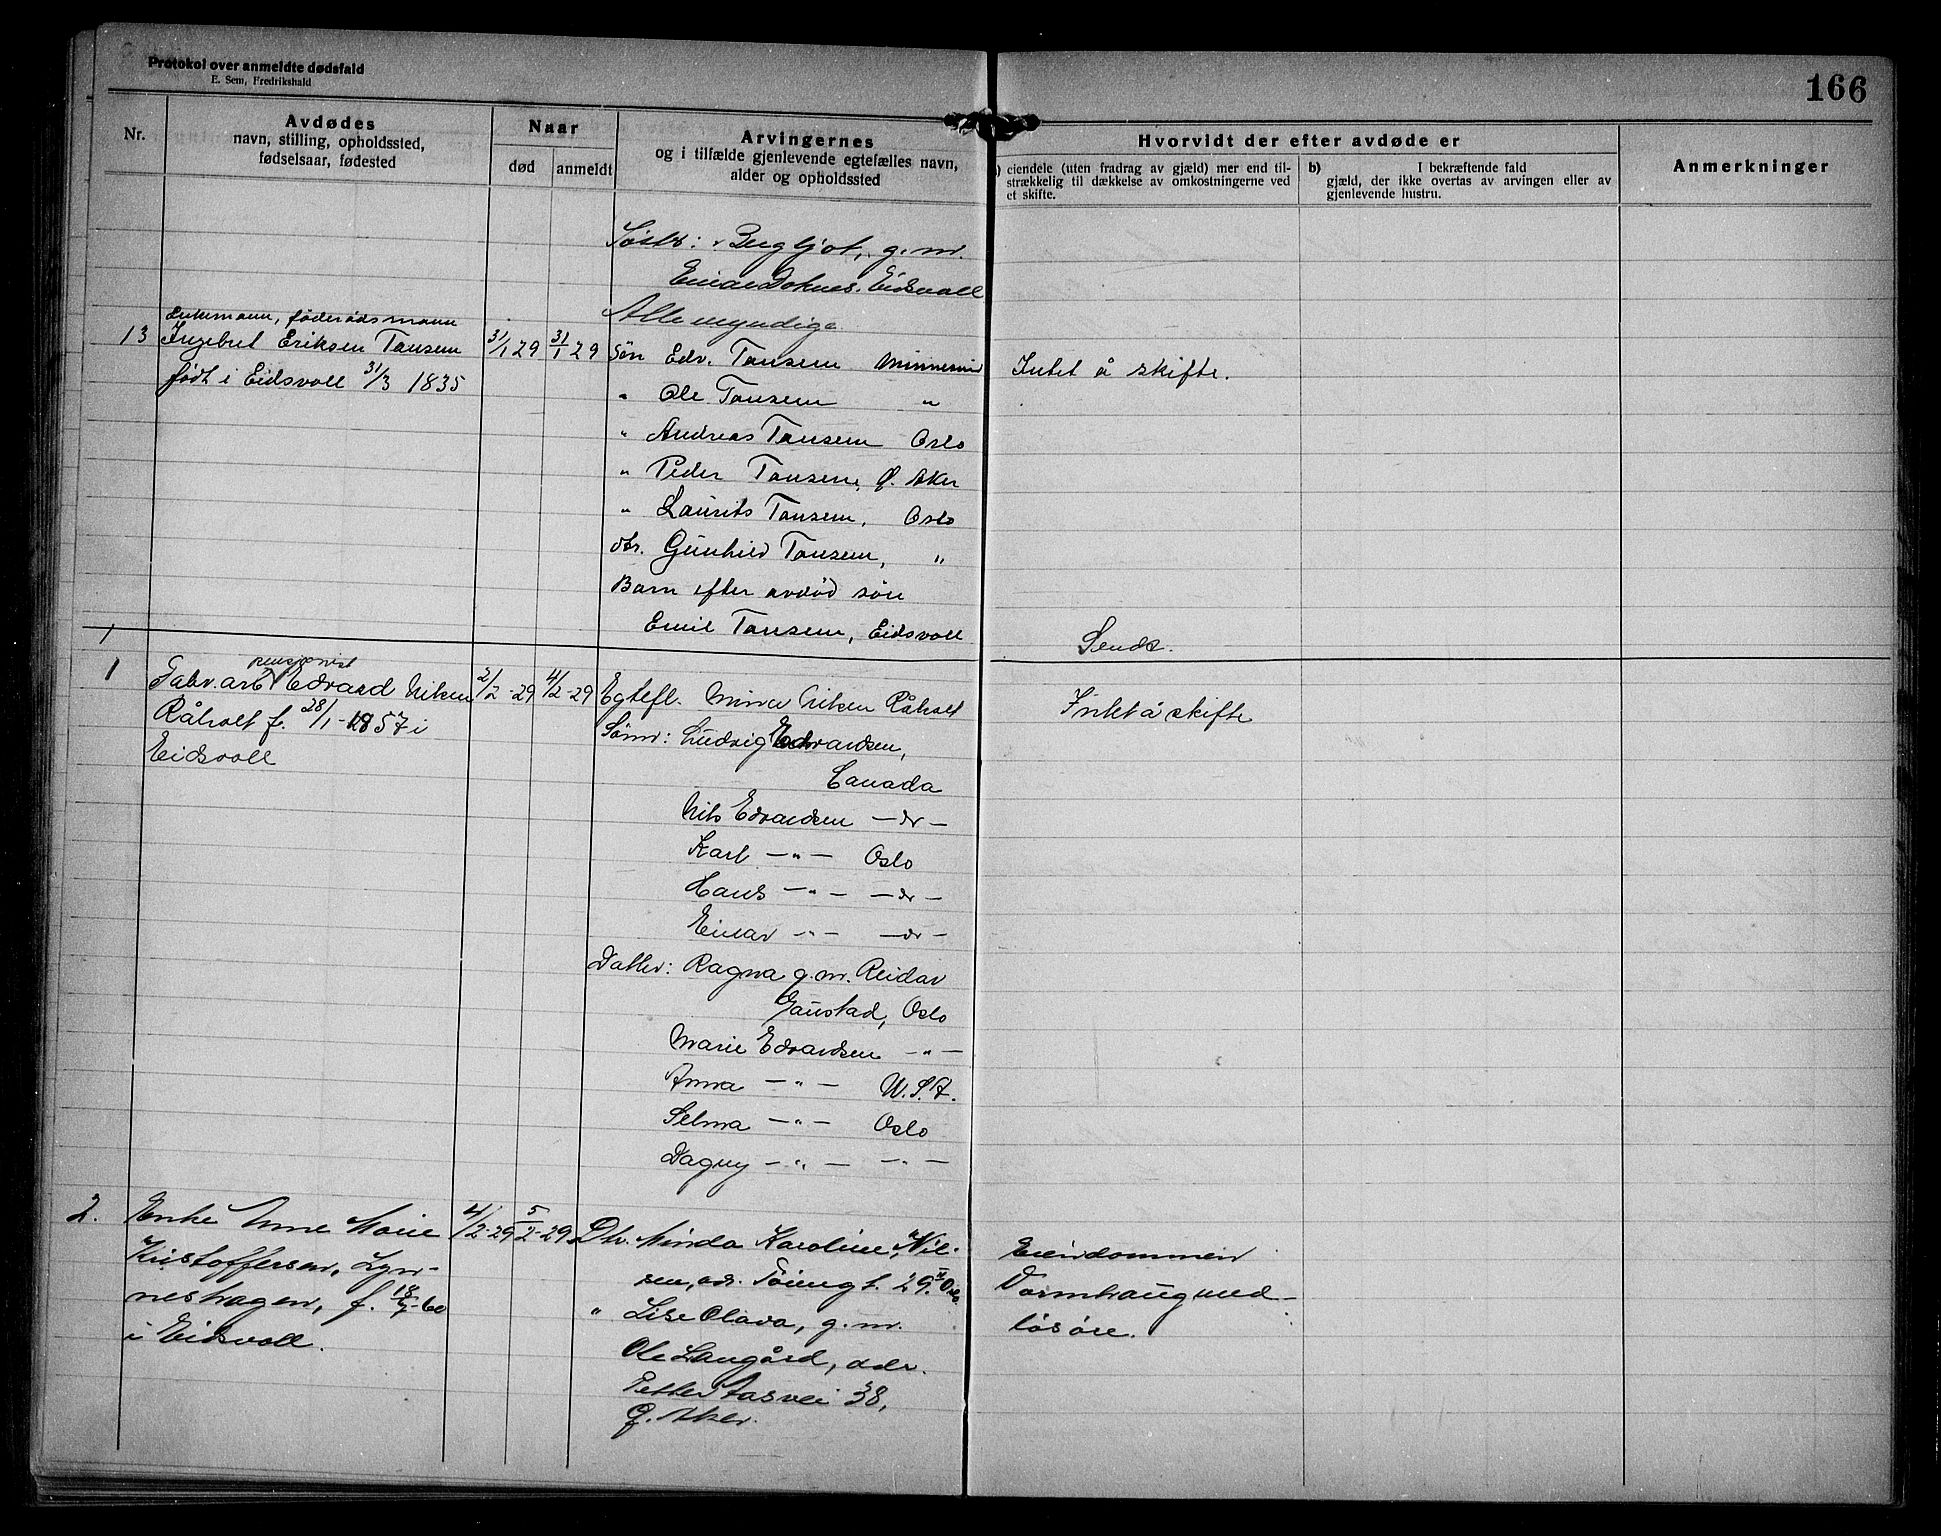 Protokol over anmeldte dødsfald
E. Sem, Fredrikshald
166
Nr.
Avdødes
navn, stilling, opholdssted,
fødselsaar, fødested
Naar
død
anmeldt
Arvingernes
og i tilfælde gjenlevende egtefælles navn,
alder og opholdssted
Hvorvidt der efter avdøde er
eiendele (uten fradrag av gjæld) mer end til-
strækkelig til dækkelse av omkostningerne ved
et skifte.
b) I bekræftende fald
gjæld, der ikke overtas av arvingen eller av
gjenlevende hustru.
Anmerkninger
Bergljot, g. m.
Einar Eidsvoll
Alle myndige
Enkemann, føderådsmann
13 Ingebret Eriksen Tansem 31/1 29 31/1 29 Søn Edv. Tansem Minnesund Intet å skifte.
født i Eidsvoll 31/3 1835
" Ole Tansem "
" Andreas Tansem Oslo
" Peder Tansem, Ø. Aker
" Laurits Tansem, Oslo
dtr. Gunhild Tansem, "
Barn efter avdød søn
Emil Tansem, Eidsvoll
Sendt.
pensjonist
1 Fabr.arb. Edvard Nilsen 2/2-29 4/2-29 Egtefl. Nilsen Råholt Intet å skifte
Råholt f. 28/1-1857 i
Eidsvoll
Sønner: Ludvig Edvardsen,
Canada
Nils Edvardsen —do—
Karl —"— Oslo
Hans —"— —do—
Einar —"— —do—
Datter: Ragna g. m. Reidar
Gaustad, Oslo
Marie Edvardsen —"—
Anna —"— U.S.A.
Selma —"— Oslo
Dagny —"— —"—
2. Enke Anne Marie 4/2-29 5/2-29 Dtr. Minda Karoline Nil-
Kristoffersen,
f. 60
i Eidsvoll.
sen, adr. Tøiengt. 29. Oslo
" Lise Olava, g. m.
Ole Langård, adr.
38,
Ø. Aker.
Eiendommen
Dormhaug med
løsøre.